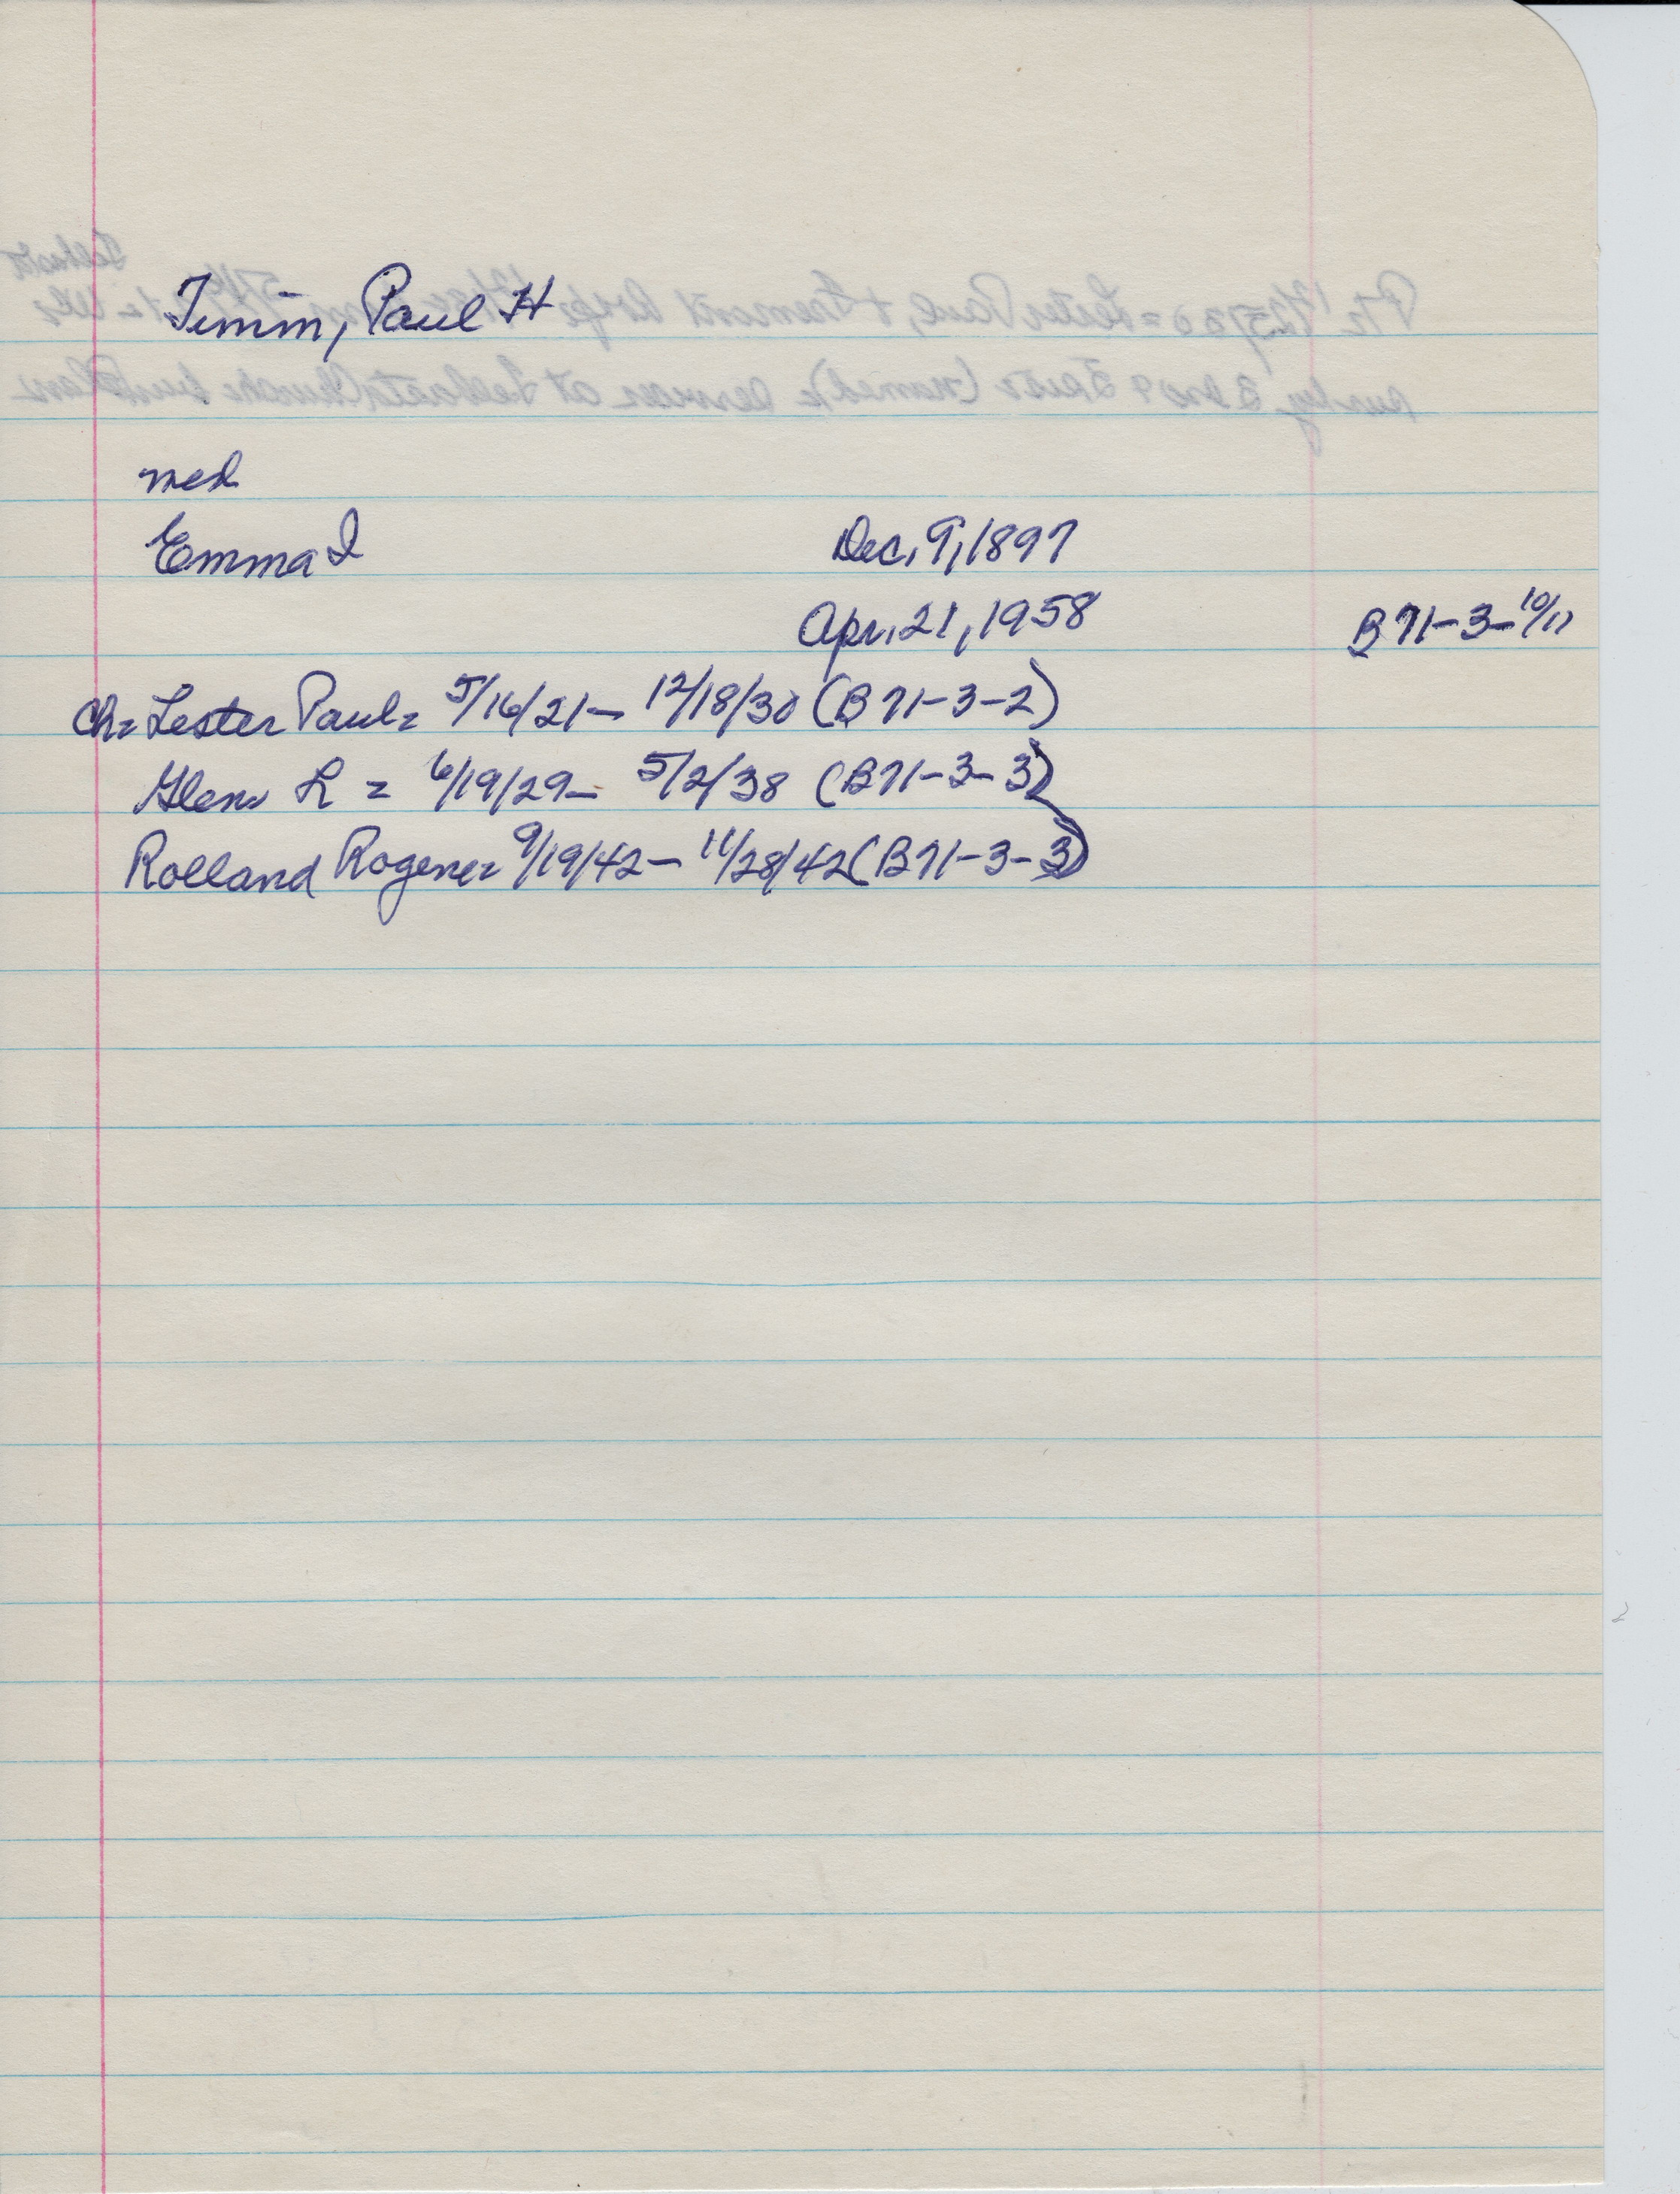 Timm, Paul H
med
Emma I Dec. 9, 1897
Apr. 21, 1958 B 71-3-10/11
Ch= Lester Paul= 5/16/21- 12/18/30 (B 71-3-2)
Glenn L = 6/19/29- 5/2/38 (B71-3-3)
Rolland Rogene= 9/19/42- 11/28/42 (B71-3-3)